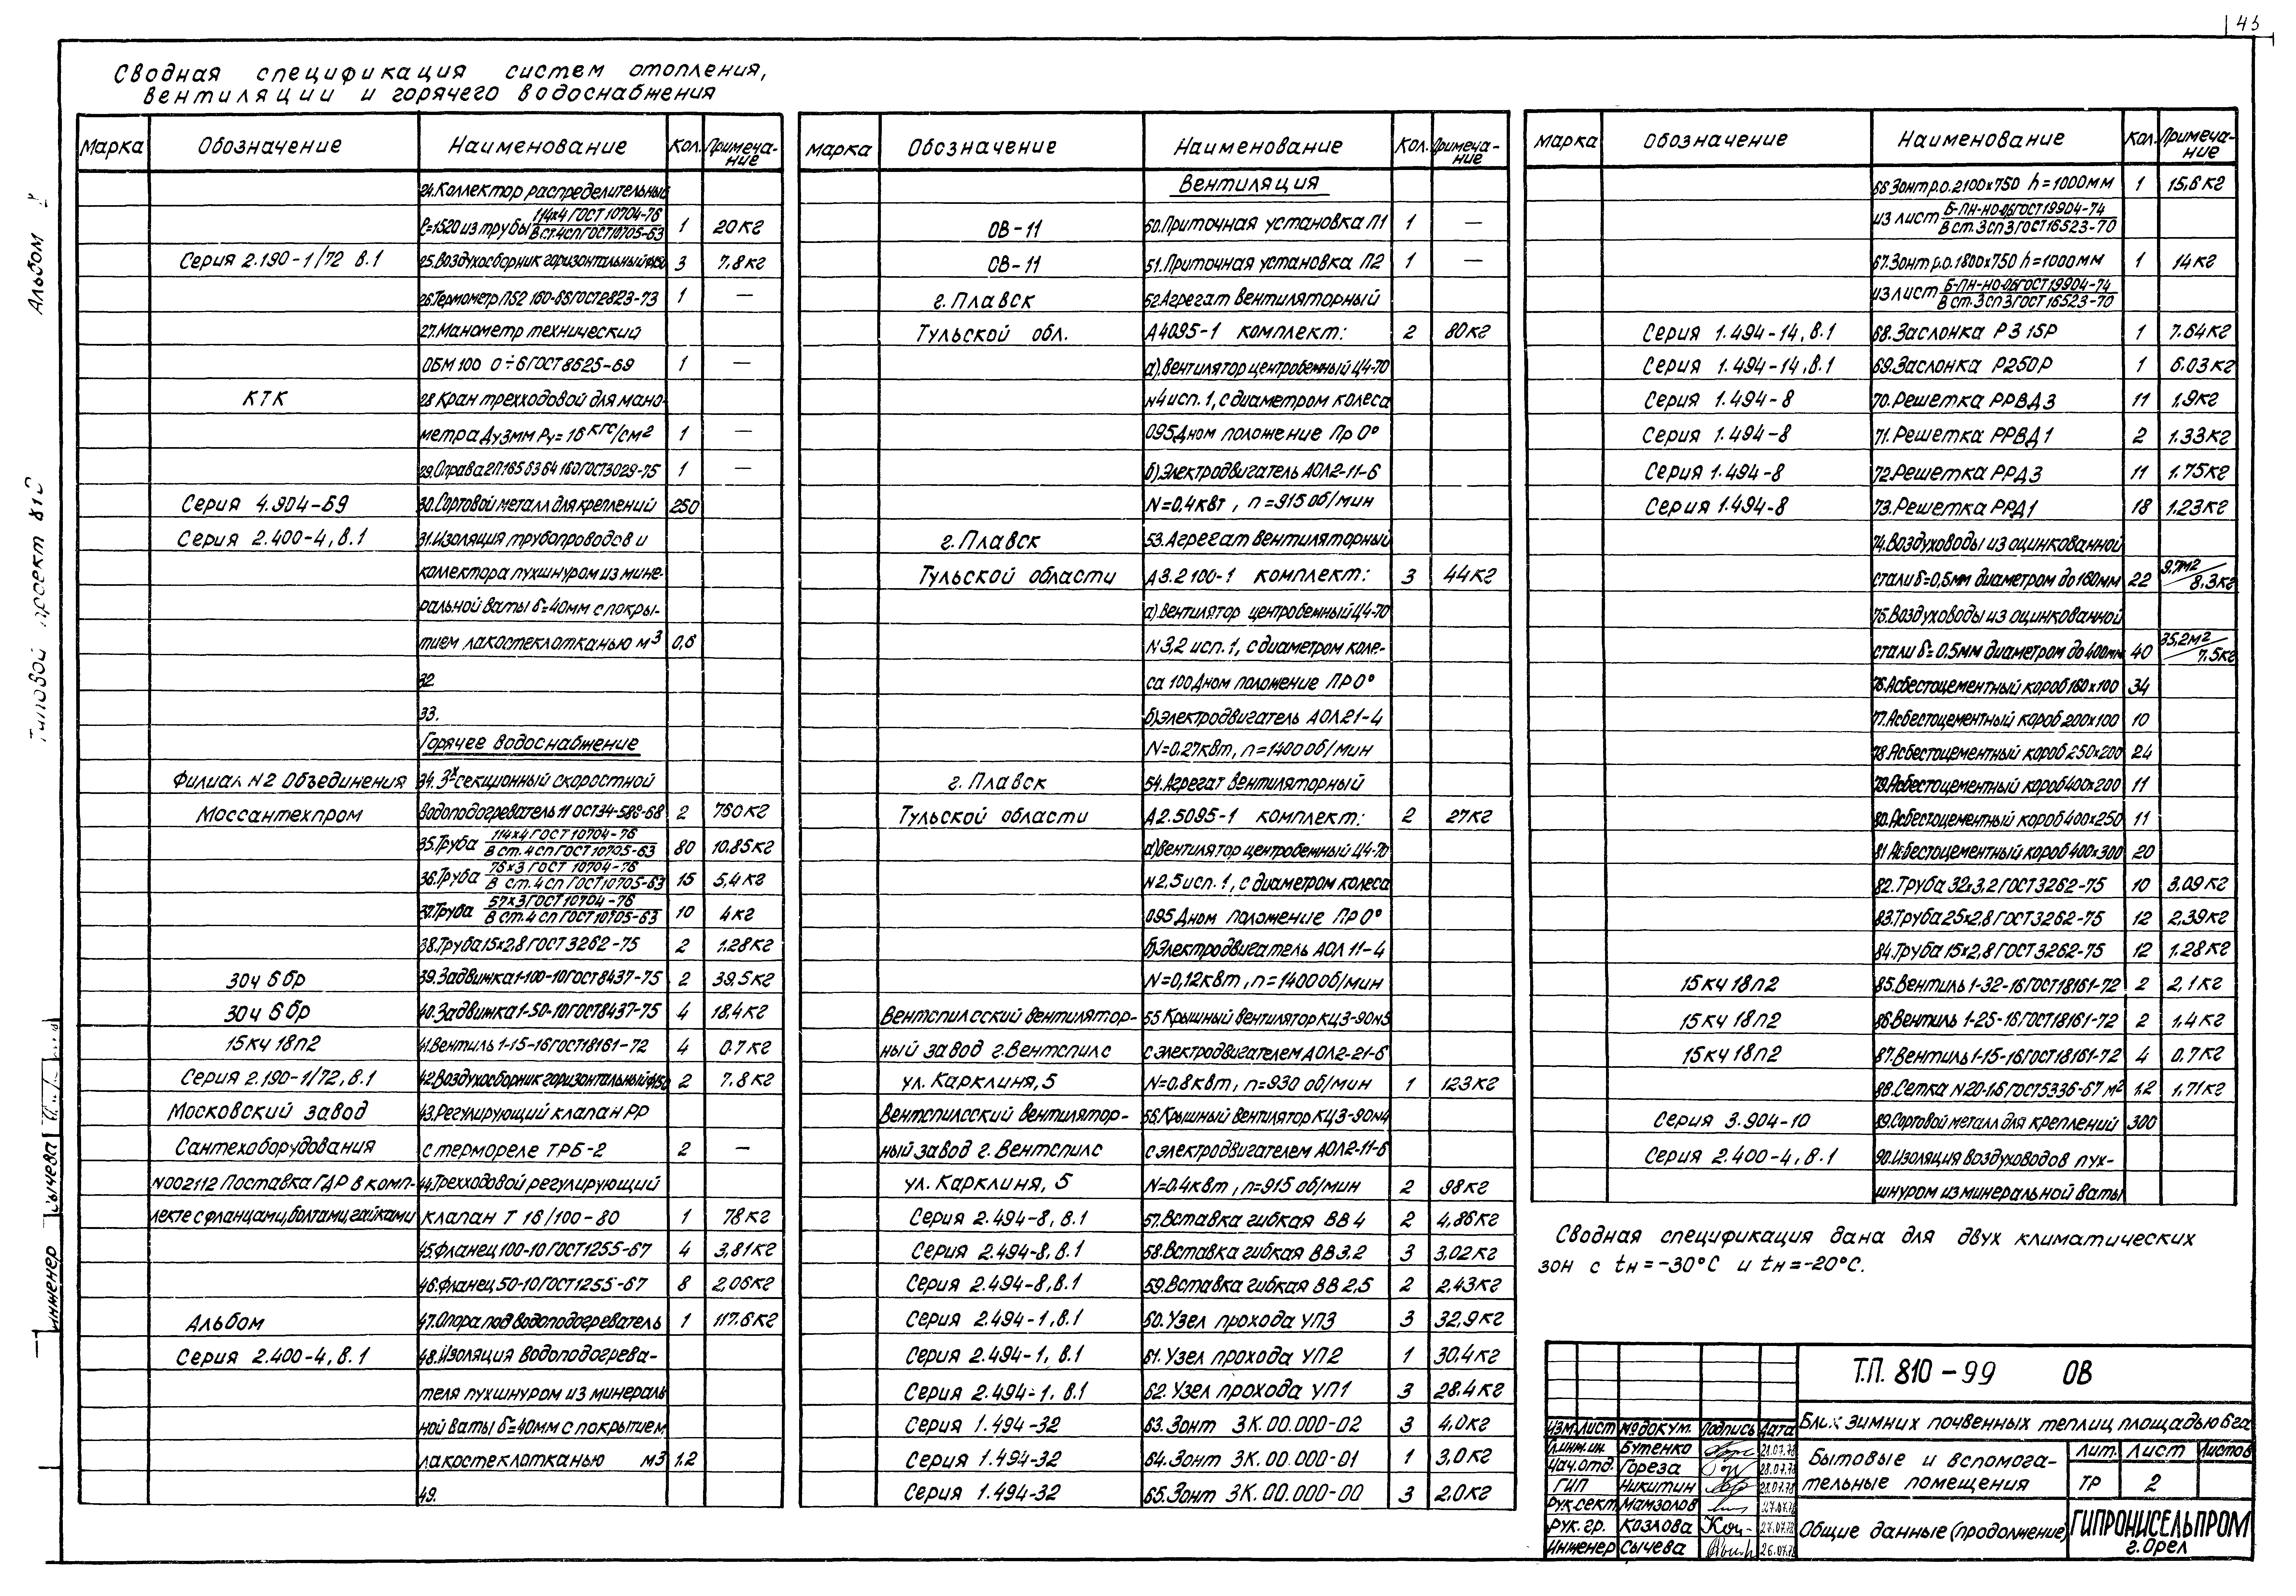 43
Сводная спецификация систем отопления,
вентиляции и горячего водоснабжения
Альбом
Типовой проект 810
Инженер Сычева
Марка Обозначение Наименование Кол. Примеча-
ние
24.Коллектор распределительный
ℓ=1520 из трубы 114х4 ГОСТ 10704-76 / В ст.4сп ГОСТ10705-63 1 20кг
Серия 2.190-1/72 в.1 25.Воздухосборник горизонтальный ф150 3 7.8кг
26.Термометр П52 160-85 ГОСТ2823-73 1 —
27.Манометр технический
ОБМ 100 0÷6 ГОСТ 8625-69 1 —
КТК 28 Кран трехходовой для мано-
метра Ду3мм Ру=16 кгс/см2 1 —
29.Оправа 2П 165 63 64 160 ГОСТ3029-75 1 —
Серия 4.904-69 30.Сортовой металл для креплений 250
Серия 2.400-4, в.1 31.Изоляция трубопроводов и
коллектора пухшнуром из мине-
ральной ваты δ=40мм с покры-
тием лакостеклотканью м3 0,6
32
33.
Горячее водоснабжение
Филиал N2 Объединения 34. 3х секционный скоростной
Моссантехпром водоподогреватель 11 ОСТ34-588-68 2 760кг
35.Труба 114х4 ГОСТ 10704-76 / В ст. 4 сп ГОСТ 10705-63 80 10.85кг
36.Труба 76х3 ГОСТ 10704-76 / В ст. 4 сп ГОСТ 10705-63 15 5,4кг
37.Труба 57х3 ГОСТ 10704-76 / В ст. 4 сп ГОСТ 10705-63 10 4кг
38.Труба 15х2.8 ГОСТ 3262-75 2 1.28кг
30ч 6бр 39.Задвижка 1-100-10 ГОСТ8437-75 2 39,5кг
30ч 6бр 40.Задвижка 1-50-10 ГОСТ8437-75 4 18.4кг
15кч 18п2 41.Вентиль 1-15-16 ГОСТ18161-72 4 0.7кг
Серия 2.190-1/72, в.1 42.Воздухосборник горизонтальный ф150 2 7.8кг
Московский завод 43.Регулирующий клапан РР
Сантехоборудования с термореле ТРБ-2 2 —
N002112 Поставка ГДР в комп- 44.Трехходовой регулирующий
лекте с фланцами, болтами, гайками клапан Т 16/100-80 1 78кг
45.Фланец 100-10 ГОСТ1255-67 4 3,81кг
46.Фланец 50-10 ГОСТ1255-67 8 2,06кг
Альбом 47.Опора под водоподогреватель 1 117.6кг
Серия 2.400-4, в.1 48.Изоляция водоподогрева-
теля пухшнуром из минераль
ной ваты δ=40мм с покрытием
лакостеклотканью м3 1.2
49.
Марка Обозначение Наименование Кол. Примеча-
ние
Вентиляция
ОВ-11 50.Приточная установка П1 1 —
ОВ-11 51.Приточная установка П2 1 —
г.Плавск 52.Агрегат вентиляторный
Тульской обл. А4095-1 комплект: 2 80кг
а).Вентилятор центробежный Ц4-70
N4 исп. 1, с диаметром колеса
095Дном положение Пр 0°
б).Электродвигатель АОЛ2-11-6
N=0,4квт, n=915 об/мин
г.Плавск 53.Агрегат вентиляторный
Тульской области А3.2 100-1 комплект: 3 44кг
а).Вентилятор центробежный Ц4-70
N3,2 исп. 1, с диаметром коле-
са 100Дном положение ПР 0°
б)Электродвигатель АОЛ21-4
N=0.27квт, n=1400 об/мин
г. Плавск 54.Агрегат вентиляторный
Тульской области А2.5095-1 комплект: 2 27кг
а)Вентилятор центробежный Ц4-70
N2,5 исп. 1, с диаметром колеса
095 Дном положение Пр 0°
б)Электродвигатель АОЛ 11-4
N=0,12квт, n=1400 об/мин
Вентспилсский вентилятор- 55 Крышный вентилятор КЦ3-90N5
ный завод г.Вентспилс с электродвигателем АОЛ2-21-6
ул. Карклиня, 5 N=0.8квт, n=930 об/мин 1 123кг
Вентспилсский вентилятор- 56.Крышный вентилятор КЦ3-90N4
ный завод г. Вентспилс с электродвигателем АОЛ2-11-6
ул. Карклиня, 5 N=0.4квт, n=915 об/мин 2 98кг
Серия 2.494-8, в.1 57.Вставка гибкая ВВ 4 2 4,86кг
Серия 2.494-8, в.1 58.Вставка гибкая ВВ3.2 3 3,02кг
Серия 2.494-8, в.1 59.Вставка гибкая ВВ 2,5 2 2,43кг
Серия 2.494-1, в.1 60.Узел прохода УП3 3 32,9кг
Серия 2.494-1, в.1 61.Узел прохода УП2 1 30.4кг
Серия 2.494-1. в.1 62.Узел прохода УП1 3 28.4кг
Серия 1.494-32 63.Зонт ЗК.00.000-02 3 4,0кг
Серия 1.494-32 64.Зонт ЗК.00.000-01 1 3,0кг
Серия 1.494-32 65.Зонт ЗК.00.000-00 3 2.0кг
Марка Обозначение Наименование Кол. Примеча-
ние
66 Зонт р.о. 2100х750 h=1000мм 1 15,6кг
из лист Б-ПН-НО-06 ГОСТ19904-74 / В ст. 3сп 3 ГОСТ 16523-70
67.Зонт р.о. 1800х750 h=1000мм 1 14кг
из лист Б-ПН-НО-06 ГОСТ19904-74 / В ст. 3сп 3 ГОСТ 16523-70
Серия 1.494-14, в.1 68.Заслонка Р315Р 1 7.64кг
Серия 1.494-14, в.1 69.Заслонка Р250Р 1 6.03кг
Серия 1.494-8 70.Решетка РРВД3 11 1,9кг
Серия 1.494-8 71.Решетка РРВД1 2 1.33кг
Серия 1.494-8 72.Решетка РРД3 11 1.75кг
Серия 1.494-8 73.Решетка РРД1 18 1.23кг
74.Воздуховоды из оцинкованной
стали δ=0,5мм диаметром до 160мм 22 9.7м2 / 8.3кг
75.Воздуховоды из оцинкованной
стали δ=0.5мм диаметром до 400мм 40 35,2м2 / 7.5кг
76.Асбестоцементный короб 160х100 34
77.Асбестоцементный короб 200х100 10
78.Асбестоцементный короб 250х200 24
79.Асбестоцементный короб 400х200 11
80.Асбестоцементный короб 400х250 11
81 Асбестоцементный короб 400х300 20
82.Труба 32х3.2 ГОСТ3262-75 10 3.09кг
83.Труба 25х2,8 ГОСТ3262-75 12 2.39кг
84.Труба 15х2,8 ГОСТ3262-75 12 1.28кг
15кч 18п2 85.Вентиль 1-32-16 ГОСТ18161-72 2 2,1кг
15кч 18п2 86.Вентиль 1-25-16 ГОСТ18161-72 2 1.4кг
15кч 18п2 87.Вентиль 1-15-16 ГОСТ18161-72 4 0.7кг
88.Сетка N20-1.6 ГОСТ5336-67 м2 1.2 1,71кг
Серия 3.904-10 89.Сортовой металл для креплений 300
Серия 2.400-4, в.1 90.Изоляция воздуховодов пух-
шнуром из минеральной ваты
Сводная спецификация дана для двух климатических
зон с tн=-30°С и tн=-20°С.
Т.П. 810-99 ОВ
Блок зимних почвенных теплиц площадью 6га
Изм. Лист №докум. Подпись Дата
Гл.инж.ин. Бутенко 21.07.78
Нач.отд. Гореза 28.07.78
ГИП Никитин 28.07.78
Рук.сект Мамзолов 27.07.78
Рук.гр. Козлова 27.07.78
Инженер Сычева 26.07.78
Бытовые и вспомога-
тельные помещения
Лит. Лист Листов
ТР 2
Общие данные (продолжение)
ГИПРОНИСЕЛЬПРОМ
г.Орел